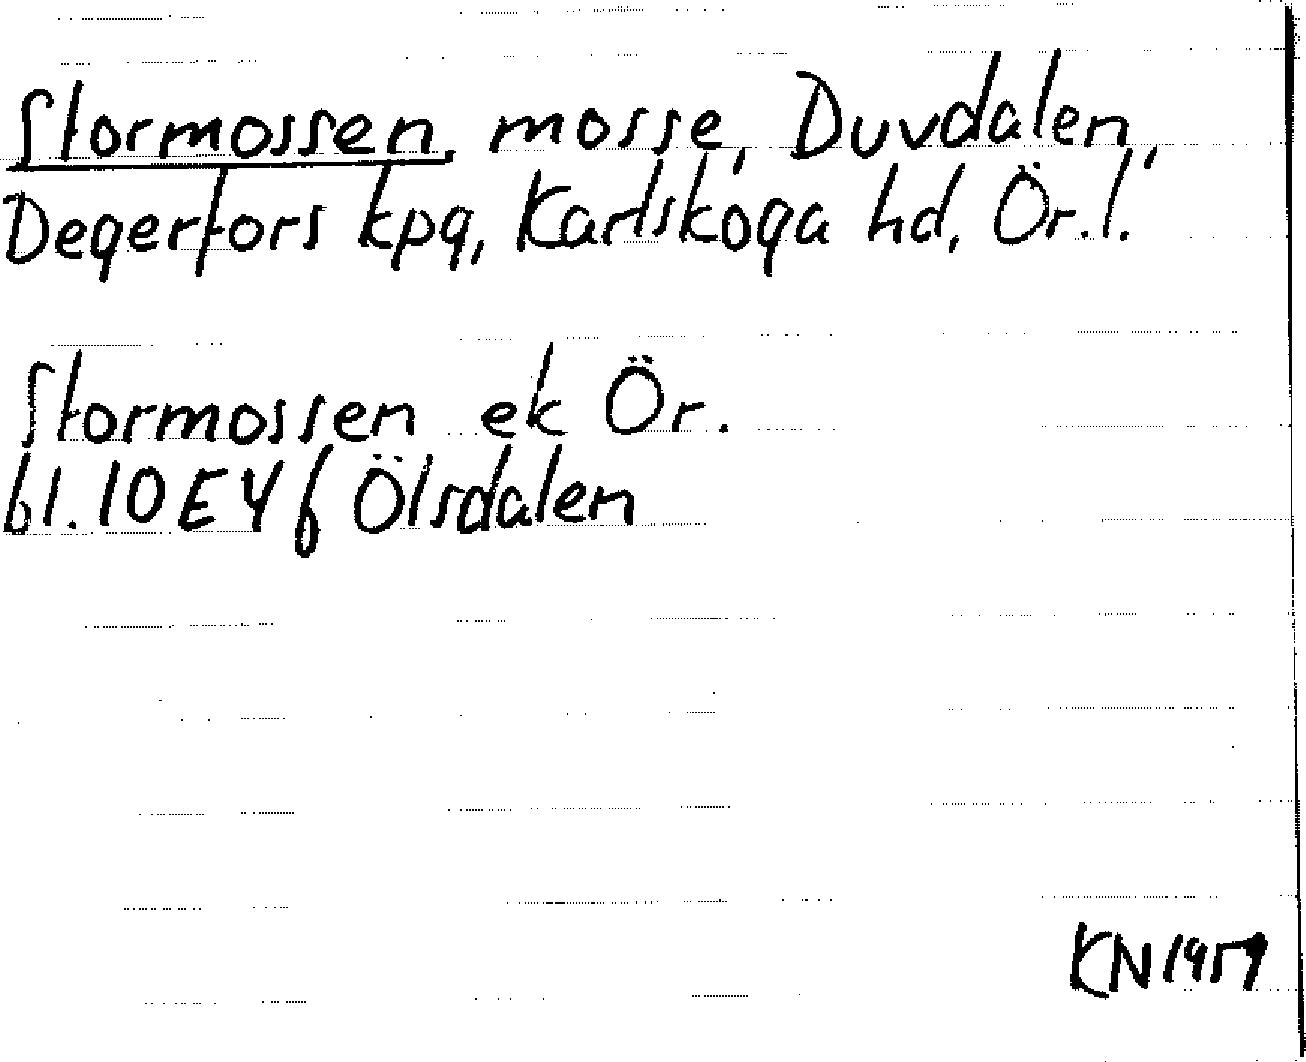 Stormossen, mosse, Duvdalen,
Degerfors kpg, Karlskoga hd, Ör.l.
Stormossen ek Ör.
bl. 10E4f Ölsdalen
KN 1959